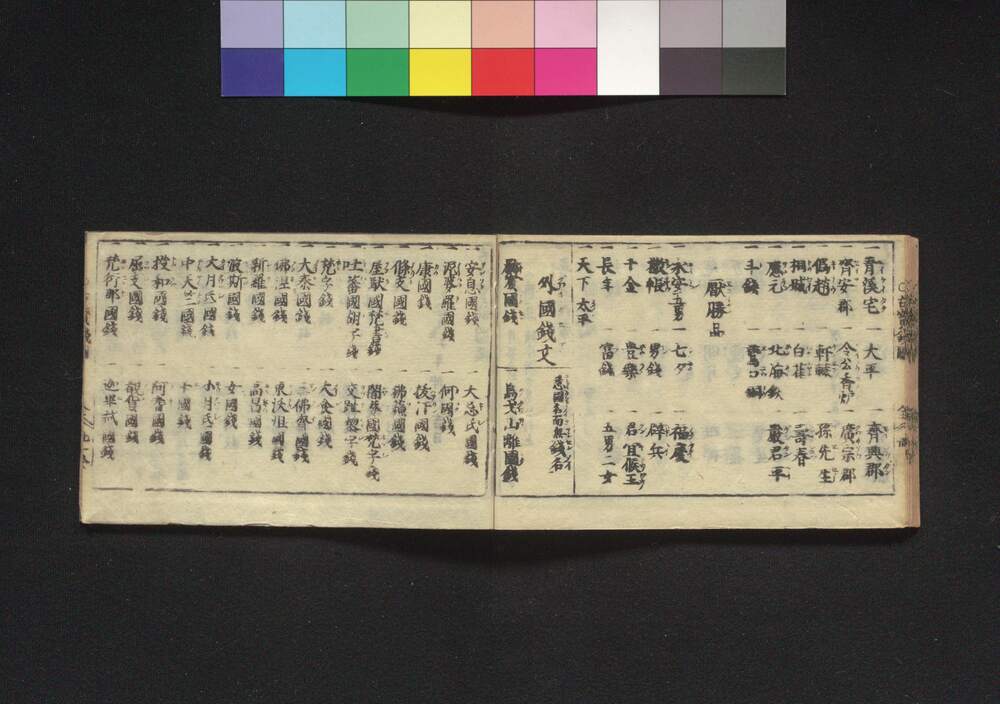 一青溪宅 一大平 一齊興郡
一齊安郡 一令公百爐 一廣宗郡
一僞趙 一軒轅 一孫先生
一桐城 一白雀 一壽春
一應元 一北海鉄 一嚴君平
一斗錢
厭勝品
一永安五男 一七夕 一福慶
一撒帳 一男錢 一辟兵
一千金 一豊樂 一君宜侯王
一長年 一富錢 一五男二女
一天下太平
外國錢文 悉國名而無錢名
一罽賓國錢 一烏弋山離國錢
一安息國錢 一大忘氏國錢
國錢 一何國錢
一康國錢 國錢
一條支國錢 國錢
一屋馱國梵書錢 國梵字錢
一吐蕃國胡字錢 一交趾 字錢
一梵字錢 一大食國錢
一大秦國錢 佛齊國錢
國錢 一東沃沮國錢
一新羅國錢 一高昌國錢
一波斯國錢 一女國錢
一大月氏國錢 一小月氏國錢
一中天竺國錢 一千國錢
一投和國錢 一阿耆國錢
一屈支國錢 一覩貨國錢
一梵衍那國錢 一迦畢試國錢